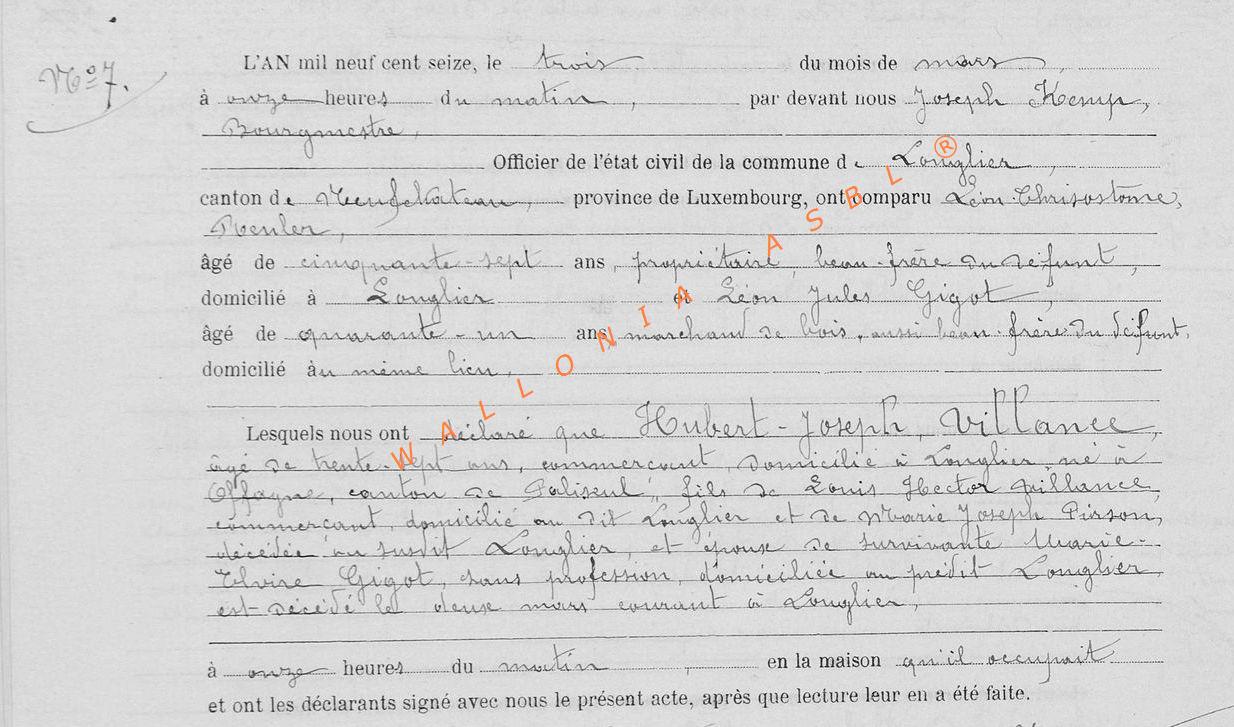 Nº 7.
L'AN mil neuf cent seize, le trois du mois de mars,
à onze heures du matin, par devant nous Joseph Kemp,
Bourgmestre,
Officier de l'état civil de la commune de Longlier,
canton de Neufchâteau, province de Luxembourg, ont comparu Léon Chrisostome,
âgé de cinquante-sept ans, propriétaire, beau-frère du défunt,
domicilié à Longlier et Léon Jules Gigot,
âgé de quarante-un ans, marchand de bois, aussi beau-frère du défunt,
domicilié au même lieu,
Lesquels nous ont déclaré que Hubert-Joseph, Villance,
âgé de trente-sept ans, commerçant, domicilié à Longlier, né à
Offagne, canton de Paliseul, fils de Louis Hector Villance,
commerçant, domicilié au dit Longlier et de Marie Joseph Pirson,
décédée au susdit Longlier, et époux de survivante Marie-
Elvire Gigot, sans profession, domiciliée au prédit Longlier,
est décédé le deux mars courant à Longlier,
à onze heures du matin, en la maison qu'il occupait
et ont les déclarants signé avec nous le présent acte, après que lecture leur en a été faite.
WALLONIA ASBL ®